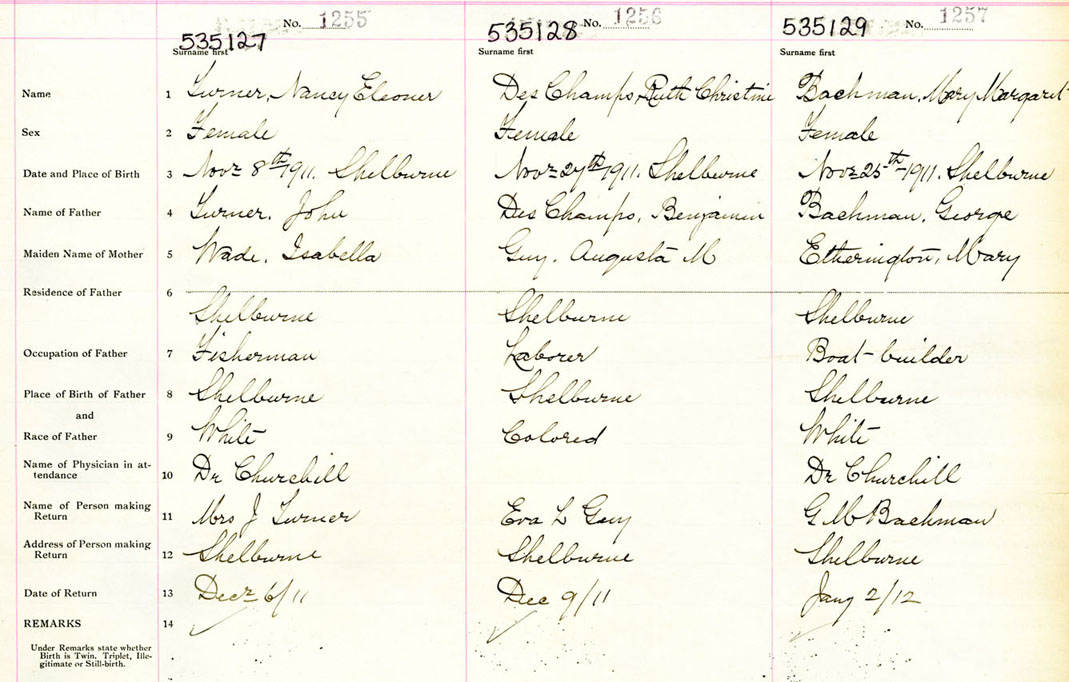 No. 1255 No. 1256 No. 1257
535127 535128 535129
Surname first Surname first Surname first
Name 1 Turner, Nancy Eleoner Des Champs, Ruth Christine Bachman, Mary Margaret
Sex 2 Female Female Female
Date and Place of Birth 3 Novr 8th 1911. Shelburne Novr 27th 1911. Shelburne Novr 25th 1911. Shelburne
Name of Father 4 Turner, John Des Champs, Benjamin Bachman, George
Maiden Name of Mother 5 Wade, Isabella Guy, Augusta M Etherington, Mary
Residence of Father 6
Shelburne Shelburne Shelburne
Occupation of Father 7 Fisherman Laborer Boat-builder
Place of Birth of Father 8 Shelburne Shelburne Shelburne
and
Race of Father 9 White Colored White
Name of Physician in at-
tendance 10 Dr Churchill Dr Churchill
Name of Person making
Return 11 Mrs J Turner Eva L Guy G M Bachman
Address of Person making
Return 12 Shelburne Shelburne Shelburne
Date of Return 13 Decr 6/11 Dec 9/11 Jany 2/12
REMARKS 14
Under Remarks state whether
Birth is Twin, Triplet, Ille-
gitimate or Still-birth.